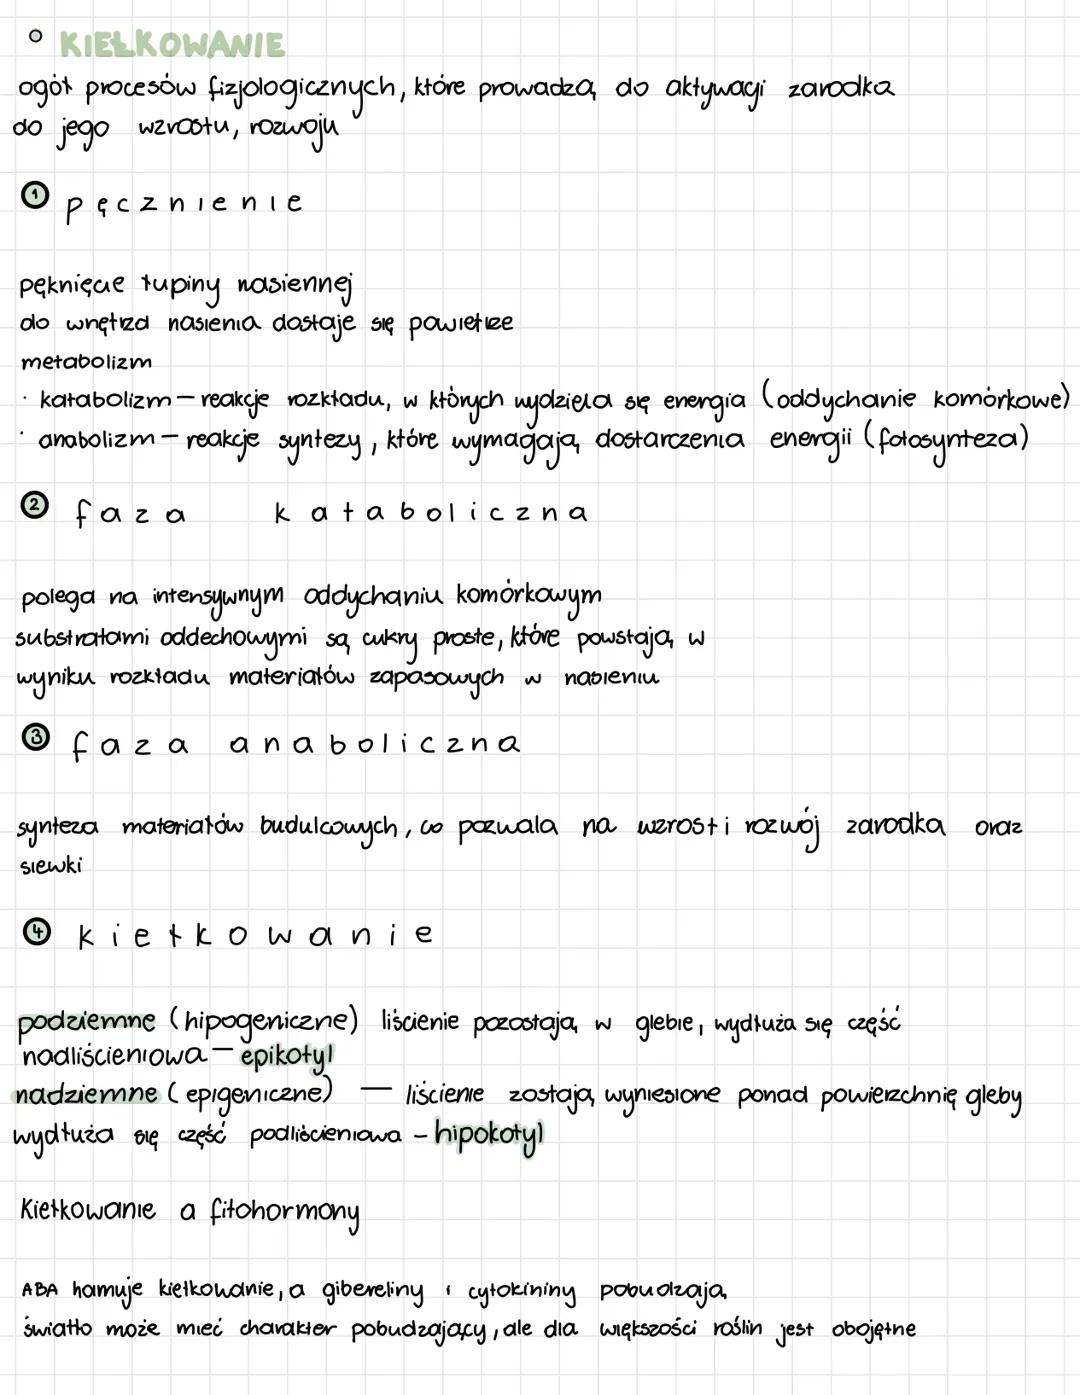 KIEŁKOWANIE
ogół procesów fizjologicznych, które prowadzą do aktywacji zarodka
do jego wzrostu, rozwoju
1 pęcznienie
pęknięcie łupiny nasiennej
do wnętrza nasienia dostaje się powietrze
metabolizm
· katabolizm – reakcje rozkładu, w których wydziela się energia (oddychanie komórkowe)
· anabolizm – reakcje syntezy, które wymagają dostarczenia energii (fotosynteza)
2 faza kataboliczna
polega na intensywnym oddychaniu komórkowym
substratami oddechowymi są cukry proste, które powstają w
wyniku rozkładu materiałów zapasowych w nasieniu
3 faza anaboliczna
synteza materiałów budulcowych, co pozwala na wzrost i rozwój zarodka oraz
siewki
4 kiełkowanie
podziemne (hipogeniczne) liścienie pozostają w glebie, wydłuża się część
nadliścieniowa – epikotyl
nadziemne (epigeniczne) – liścienie zostają wyniesione ponad powierzchnię gleby
wydłuża się część podliścieniowa – hipokotyl
Kiełkowanie a fitohormony
ABA hamuje kiełkowanie, a gibereliny i cytokininy pobudzają
światło może mieć charakter pobudzający, ale dla większości roślin jest obojętne